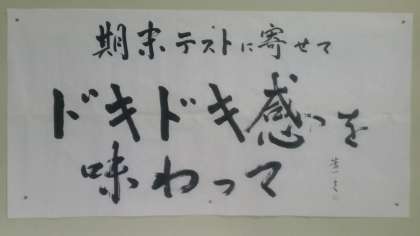 期末テストに寄せて
ドキドキ感を
味わって